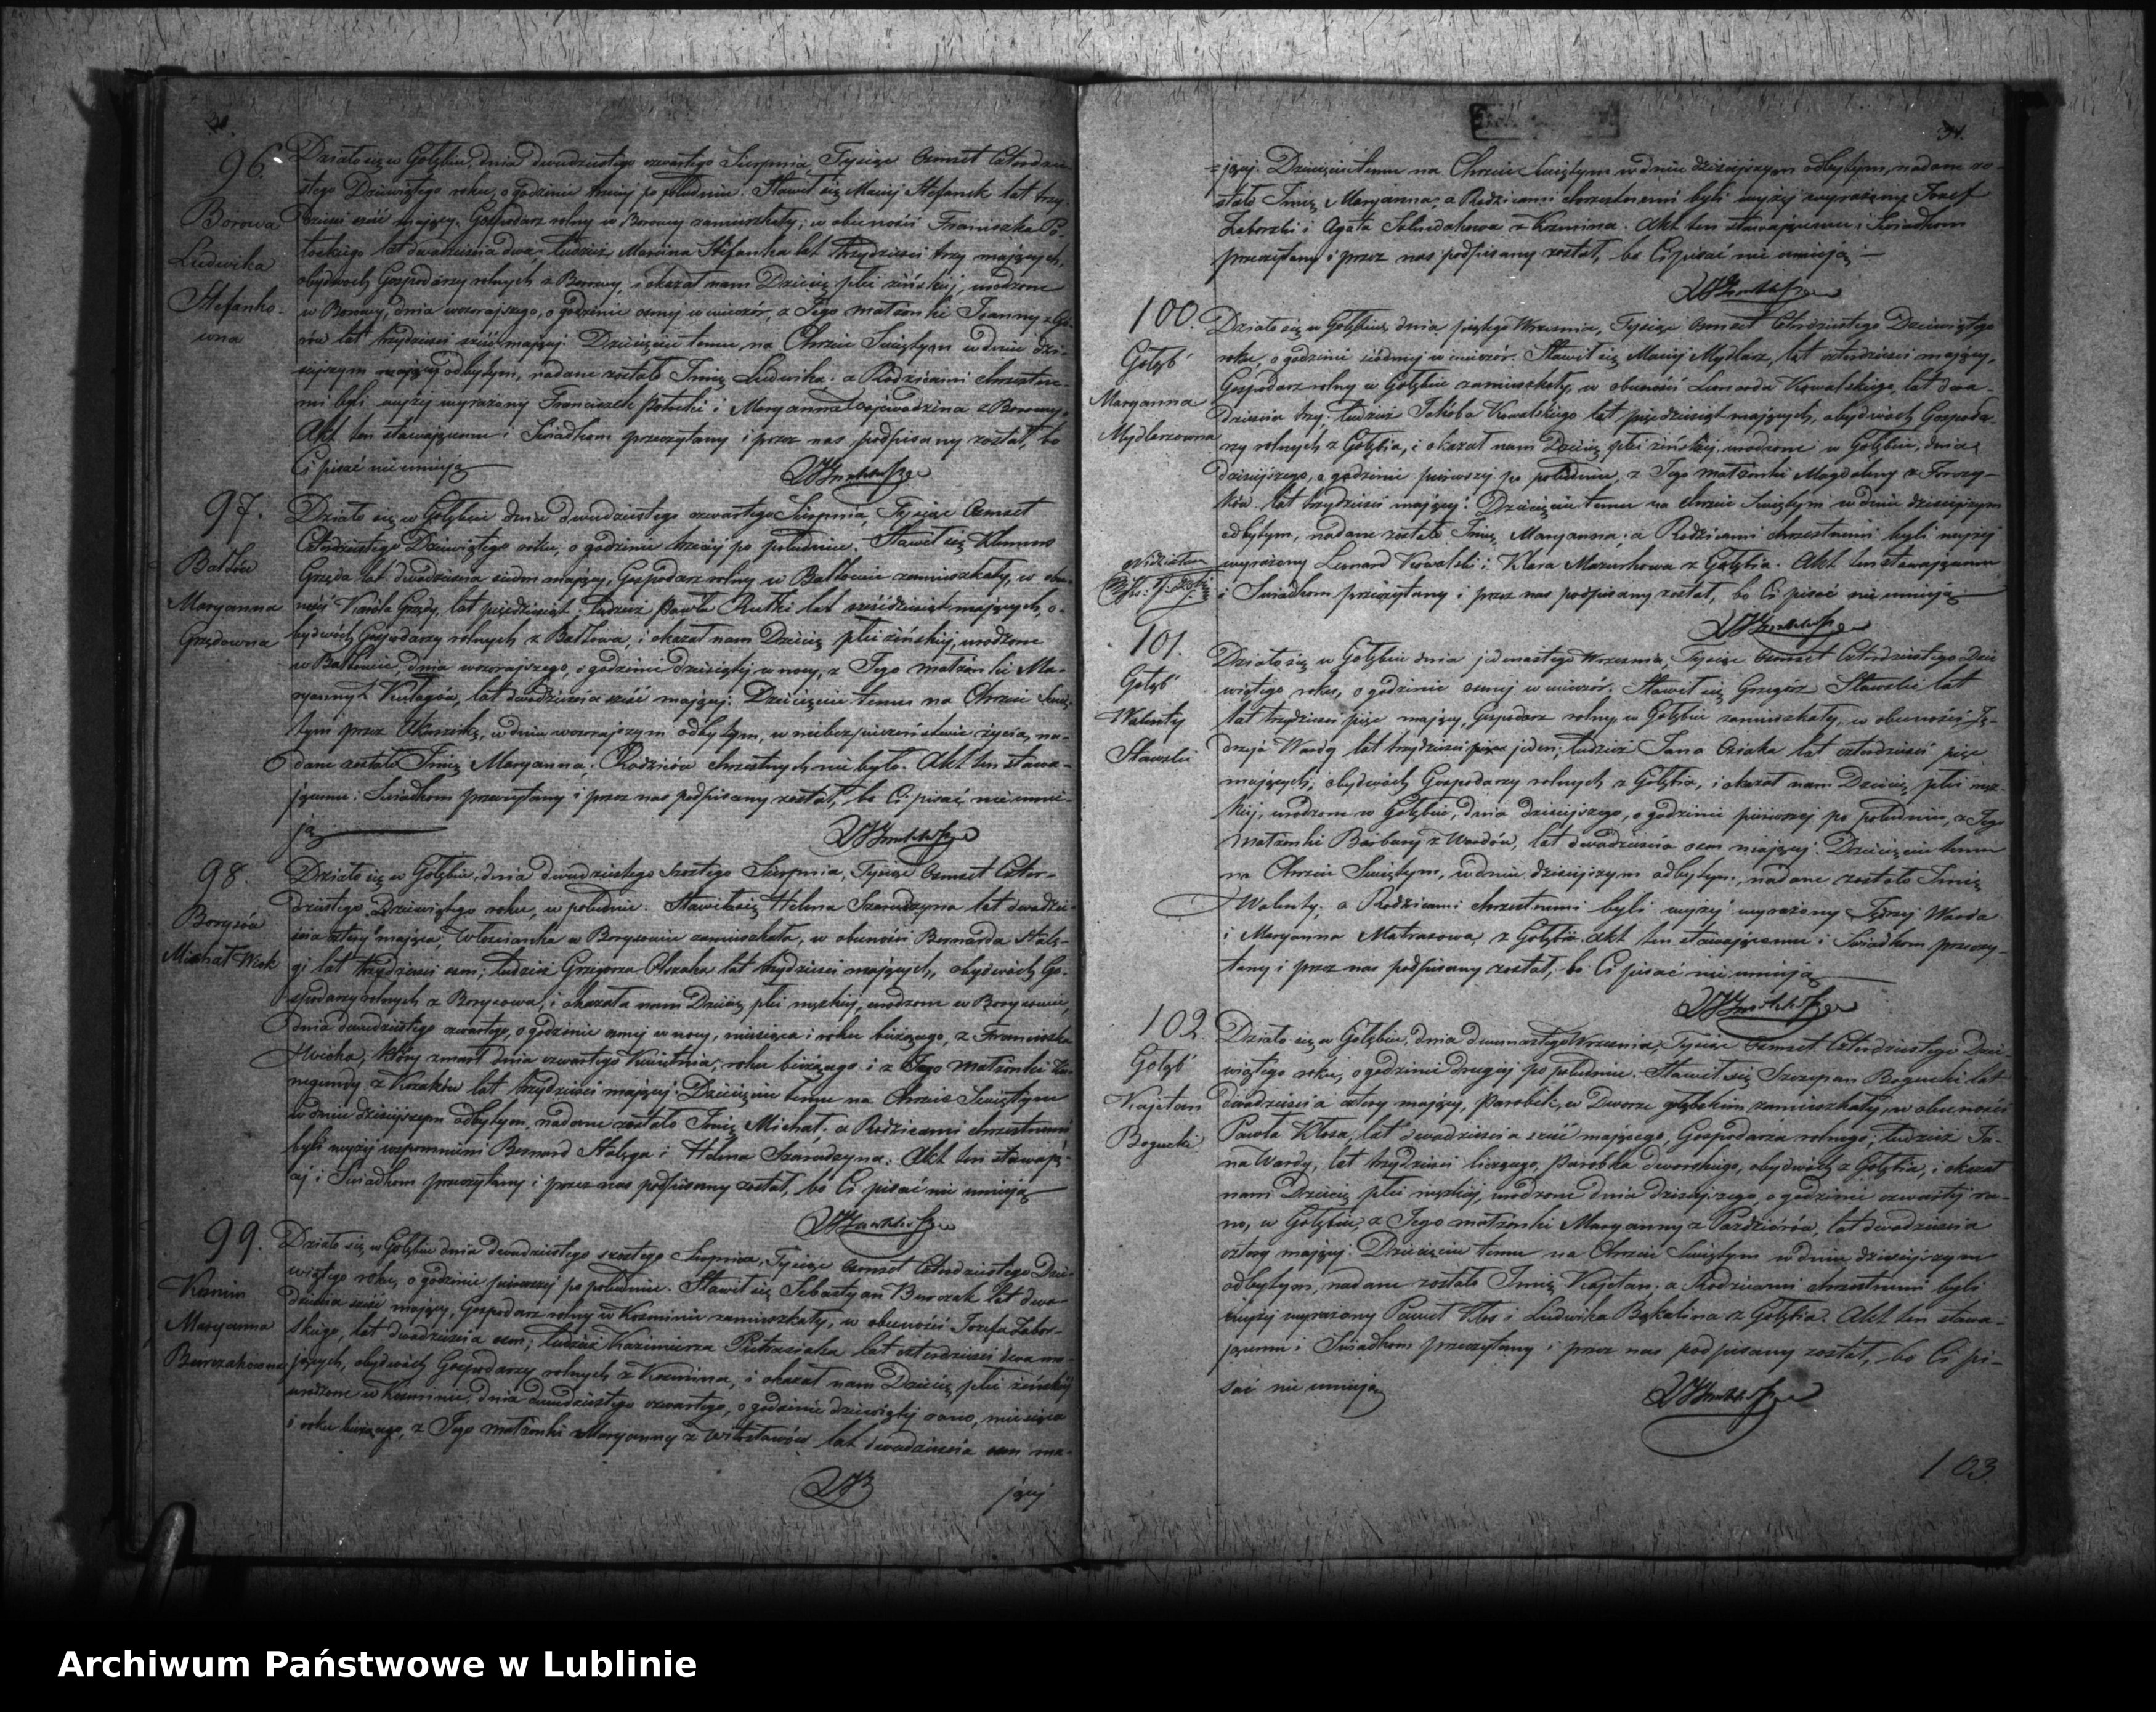 30.
96.
Borowa
Ludwika
Stefanko-
wna
Działo się w Gołębiu, dnia dwudziestego czwartego Sierpnia, Tysiąc Ośmset Czterdzie-
stego Dziewiątego roku, o godzinie po południu. Stawił się Maciej Stefanek lat trzy-
dzieści sześć mający, Gospodarz rolny w Borowy zamieszkały; w obecności Franciszka Po-
tockiego lat dwadzieścia dwa, tudzież Marcina Stefanka lat trzydzieści trzy mających,
obydwóch Gospodarzy rolnych z Borowy, i okazał nam Dziecię płci żeńskiej, urodzone
w Borowy, dnia wczorajszego, o godzinie ósmej w wieczór, z Jego małżonki Joanny z
lat trzydzieści sześć mającej. Dziecięciu temu, na Chrzcie Świętym w dniu dzi-
siejszym odbytym, nadane zostało Imię Ludwika, a Rodzicami chrzestne-
mi byli wyżej wyrażony Franciszek Potocki i Maryanna Wojewodzina z Borowy.
Akt ten stawającemu i Świadkom przeczytany i przez nas podpisany został, bo
Ci pisać nie umieją
97.
Bałtów
Maryanna
Grzędowna
Działo się w Gołębiu dnia dwudziestego czwartego Sierpnia, Tysiąc Ośmset
Czterdziestego Dziewiątego roku, o godzinie trzeciej po południu. Stawił się Klemens
Grzęda lat dwadzieścia siedm mający, Gospodarz rolny w Bałtowie zamieszkały, w obec-
ności Karola Grzędy, lat pięćdziesiąt, tudzież Pawła Rutki lat sześćdziesiąt mających, o-
bydwóch Gospodarzy rolnych z Bałtowa, i okazał nam Dziecię płci żeńskiej, urodzone
w Bałtowie, dnia wczorajszego, o godzinie dziesiątej w nocy, z Jego małżonki Ma-
ryanny z lat dwadzieścia sześć mającej. Dziecięciu temu na Chrzcie Świę-
tym przez Akuszerkę, w dniu wczorajszym odbytym, w niebezpieczeństwie życia, na-
dane zostało Imię Maryanna. Rodziców chrzestnych nie było. Akt ten stawa-
jącemu i Świadkom przeczytany i przez nas podpisany został, bo Ci pisać nie umie-
ją
98.
Borysów
Michał Wick
Działo się w Gołębiu, dnia dwudziestego szóstego Sierpnia, Tysiąc Ośmset Czter-
dziestego Dziewiątego roku, w południe. Stawiła się Helena Szaradzyna lat dwadzie-
ścia cztery mająca, Włościanka w Borysowie zamieszkała, w obecności Bernarda Stalę-
gi lat trzydzieści osm; tudzież Grzegorza lat trzydzieści mających, obydwóch Go-
spodarzy rolnych z Borysowa, i okazała nam Dziecię płci męzkiej, urodzone w Borysowie,
dnia dwudziestego czwartego, o godzinie osmej w nocy, miesiąca i roku bieżącego, z Franciszka
który zmarł dnia czwartego Kwietnia, roku bieżącego i z Jego małżonki Ku-
negundy z Kozaków lat trzydzieści mającej. Dziecięciu temu na Chrzcie Świętym
w dniu dzisiejszym odbytym, nadane zostało Imię Michał, a Rodzicami chrzestnemi
byli wyżej wspomnieni Bernard Stalęga i Helena Szaradzyna. Akt ten stawają-
cej i Świadkom przeczytany i przez nas podpisany został, bo Ci pisać nie umieją
99.
Kosmin
Maryanna
Burczakówna
Działo się w Gołębiu dnia dwudziestego szóstego Sierpnia, Tysiąc Ośmset Czterdziestego Dzie-
wiątego roku, o godzinie pierwszej po południu. Stawił się Sebastyan Burczak lat dwa-
dzieścia sześć mający, Gospodarz rolny w Kosminie zamieszkały, w obecności Jozefa Zabor-
skiego, lat dwadzieścia osm; tudzież Kazimierza Pietrasiaka lat czterdzieści dwa ma-
jących, obydwóch Gospodarzy rolnych z Kosmina, i okazał nam Dziecię płci żeńskiej
urodzone w Kosminie, dnia dwudziestego czwartego, o godzinie dziewiątej rano, miesiąca
i roku bieżącego, z Jego małżonki Maryanny z lat dwadzieścia osm ma-
jącej
31.
jącej. Dziecięciu temu na Chrzcie Świętym w dniu dzisiejszym odbytym, nadane zo-
stało Imię Maryanna, a Rodzicami chrzestnemi byli wyżej wyrażony Jozef
Zaborski i Agata z Kosmina. Akt ten stawającemu i Świadkom
przeczytany i przez nas podpisany został, bo Ci pisać nie umieją
100.
Gołąb
Maryanna
Mydlarzowna
Widziałem
Działo się w Gołębiu, dnia piątego Września, Tysiąc Ośmset Czterdziestego Dziewiątego
roku, o godzinie siódmej w wieczór. Stawił się Maciej Mydlarz, lat czterdzieści mający,
Gospodarz rolny w Gołębiu zamieszkały, w obecności Leonarda Kowalskiego, lat dwa-
dzieścia trzy; tudzież Jakóba Kowalskiego lat pięćdziesiąt mających, obydwóch Gospoda-
rzy rolnych z Gołębia, i okazał nam Dziecię płci żeńskiej, urodzone w Gołębiu, dnia
dzisiejszego, o godzinie pierwszej po południu, z Jego małżonki Magdaleny z
ków lat trzydzieści mającej. Dziecięciu temu na chrzcie Świętym w dniu dzisiejszym
odbytym, nadane zostało Imię Maryanna, a Rodzicami chrzestnemi byli wyżej
wyrażony Leonard Kowalski i Klara Mazurkowa z Gołębia. Akt ten stawającemu
i Świadkom przeczytany i przez nas podpisany został, bo Ci pisać nie umieją
101.
Gołąb
Walenty
Sławski
Działo się w Gołębiu dnia jedenastego Września, Tysiąc Ośmset Czterdziestego Dzie-
wiątego roku, o godzinie osmej w wieczór. Stawił się Grzegórz Sławski lat
lat trzydzieści pięć mający, Gospodarz rolny w Gołębiu zamieszkały, w obecności Ję-
drzeja Wardy lat trzydzieści jeden; tudzież Jana lat czterdzieści pięć
mających, obydwóch Gospodarzy rolnych z Gołębia, i okazał nam Dziecię płci męz-
kiej, urodzone w Gołębiu, dnia dzisiejszego, o godzinie pierwszej po południu, z Jego
małżonki Barbary z Wardów, lat dwadzieścia osm mającej. Dziecięciu temu
na Chrzcie Świętym, w dniu dzisiejszym odbytym, nadane zostało Imię
Walenty, a Rodzicami chrzestnemi byli wyżej wyrażony Jędrzej Warda
i Maryanna Matrasowa z Gołębia. Akt ten stawającemu i Świadkom przeczy-
tany i przez nas podpisany został, bo Ci pisać nie umieją
102.
Gołąb
Kajetan
Bogucki
Działo się w Gołębiu, dnia dwunastego Września, Tysiąc Ośmset Czterdziestego Dzie-
wiątego roku, o godzinie drugiej po południu. Stawił się Szczepan Bogucki lat
dwadzieścia cztery mający, Parobek, w Dworze gołębskim zamieszkały, w obecności
Pawła Kłosa, lat dwadzieścia sześć mającego, Gospodarza rolnego; tudzież Ja-
na Wardy, lat trzydzieści liczącego, Parobka dworskiego, obydwóch z Gołębia, i okazał
nam Dziecię płci męzkiej, urodzone dnia dzisiejszego, o godzinie czwartej ra-
no, w Gołębiu, z Jego małżonki Maryanny z Paździorów, lat dwadzieścia
cztery mającej. Dziecięciu temu na Chrzcie Świętym w dniu dzisiejszym
odbytym, nadane zostało Imię Kajetan, a Rodzicami chrzestnemi byli
wyżej wyrażony Paweł Kłos i Ludwika Bąkalina z Gołębia. Akt ten stawa-
jącemu i Świadkom przeczytany i przez nas podpisany został, bo Ci pi-
sać nie umieją
103.
Archiwum Państwowe w Lublinie